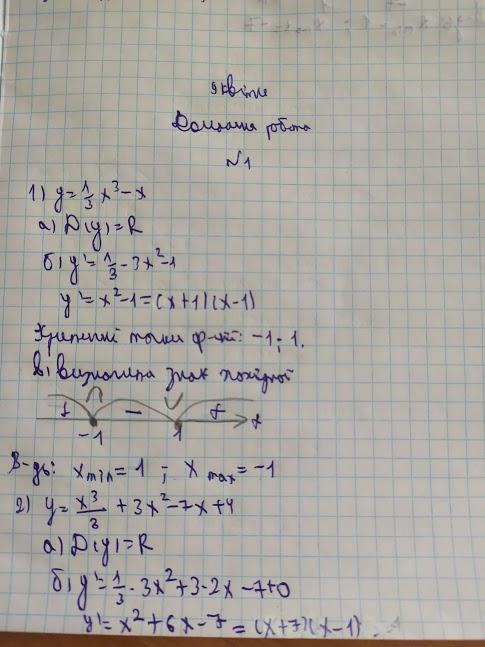 9 квітня
Домашня робота
№1
1) y = 1/3 x³ - x
а) D(y) = R
б) y' = 1/3 · 3x² - 1
y' = x² - 1 = (x+1)(x-1)
Критичні точки ф-ції: -1; 1.
в) визначила знак похідної
+ - +
-1 1 x
В-дь: x min = 1 ; x max = -1
2) y = x³/3 + 3x² - 7x + 4
а) D(y) = R
б) y' = 1/3 · 3x² + 3·2x - 7 + 0
y' = x² + 6x - 7 = (x+7)(x-1)